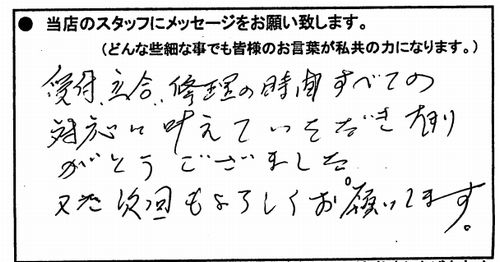 ● 当店のスタッフにメッセージをお願い致します。
(どんな些細な事でも皆様のお言葉が私共の力になります。)
受付、立合、修理の時間すべての
対応に叶えていただき有り
がとうございました
又た次回もよろしくお願いします。